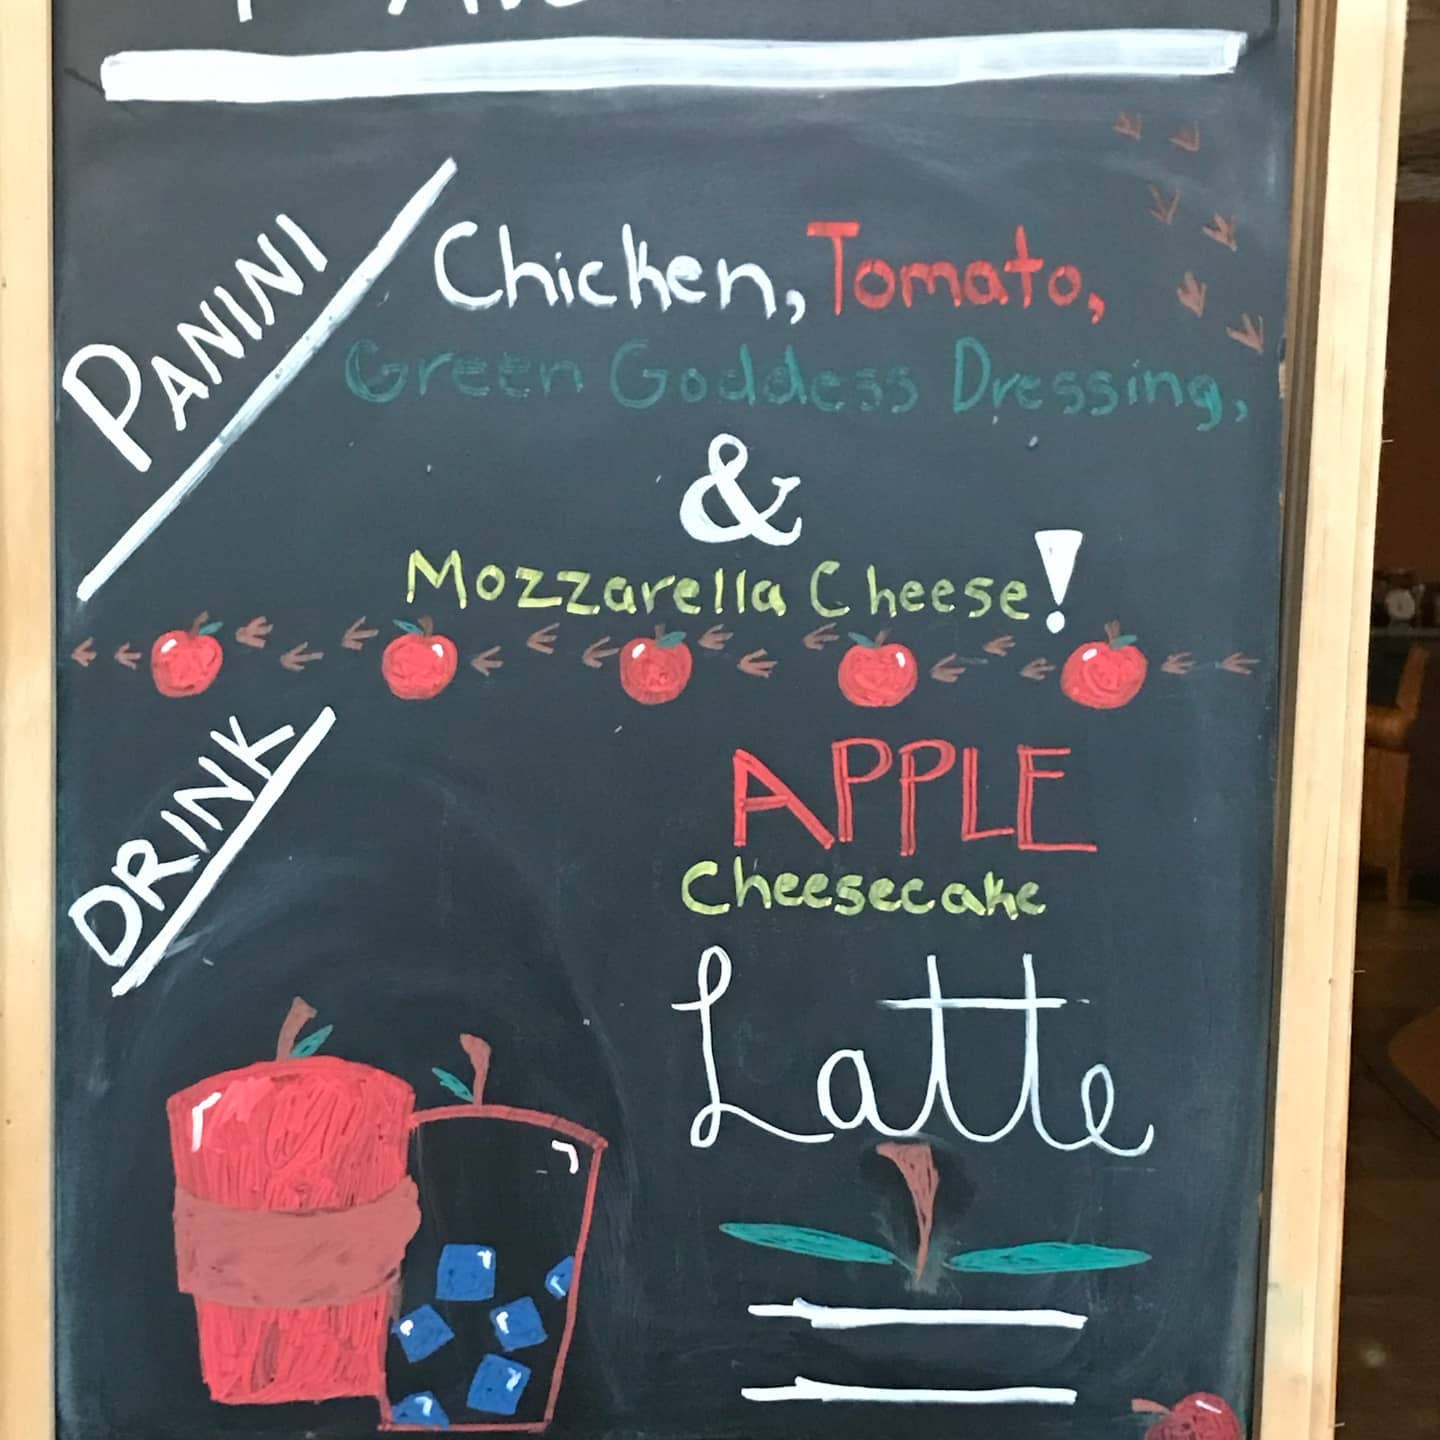 PANINI
Chicken, Tomato,
Green Goddess Dressing,
&
Mozzarella Cheese!
DRINK
APPLE
Cheesecake
Latte